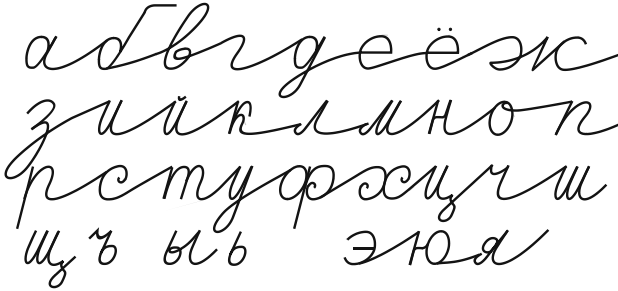 абвгдеёж
зийклмноп
рстуфхцчш
щъ ыь эюя